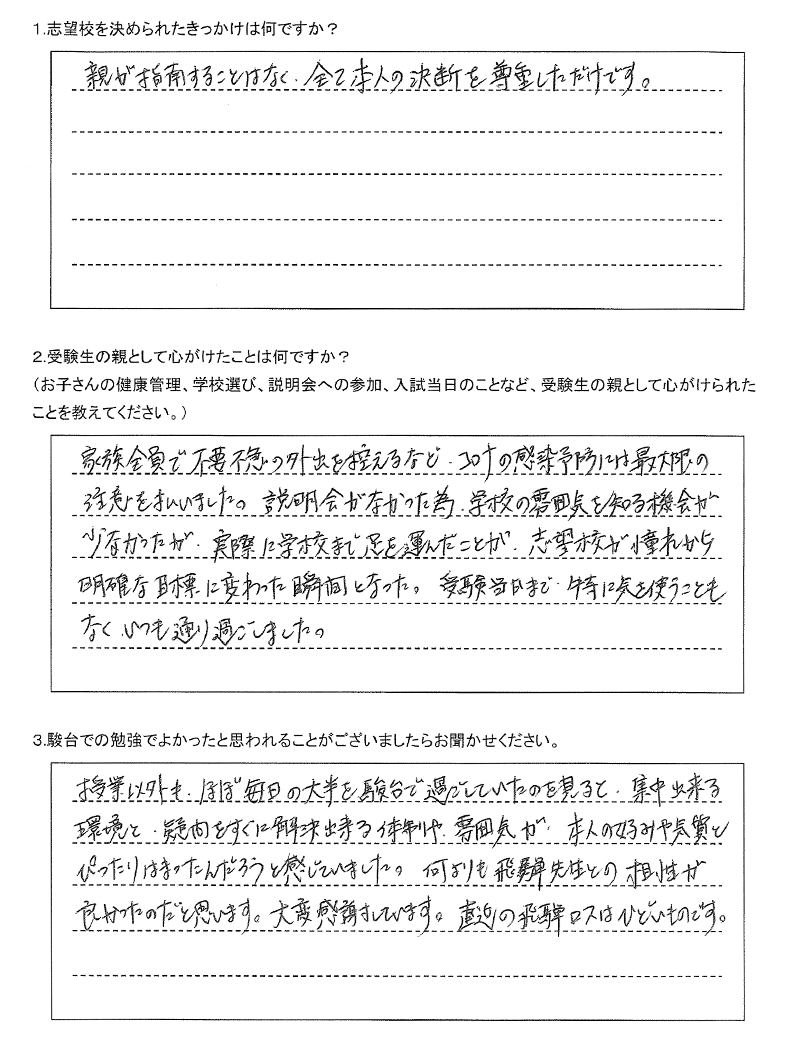 1.志望校を決められたきっかけは何ですか？
親が指南することはなく、全て本人の決断を尊重しただけです。
2.受験生の親として心がけたことは何ですか？
（お子さんの健康管理、学校選び、説明会への参加、入試当日のことなど、受験生の親として心がけられた
ことを教えてください。）
家族全員で不要不急の外出を控えるなど、コロナの感染予防には最大限の
注意を払いました。説明会がなかった為、学校の雰囲気を知る機会が
少なかったが、実際に学校まで足を運んだことが、志望校が憧れから
明確な目標に変わった瞬間となった。受験当日まで、特に気を使うことも
なく、いつも通り過ごしました。
3.駿台での勉強でよかったと思われることがございましたらお聞かせください。
授業以外も、ほぼ毎日の大半を駿台で過ごしていたのを見ると、集中出来る
環境と、疑問をすぐに解決出来る体制や、雰囲気が、本人の好みや気質と
ぴったりはまったんだろうと感じていました。何よりも飛騨先生との相性が
良かったのだと思います。大変感謝しています。直近の飛騨ロスはひどいものです。